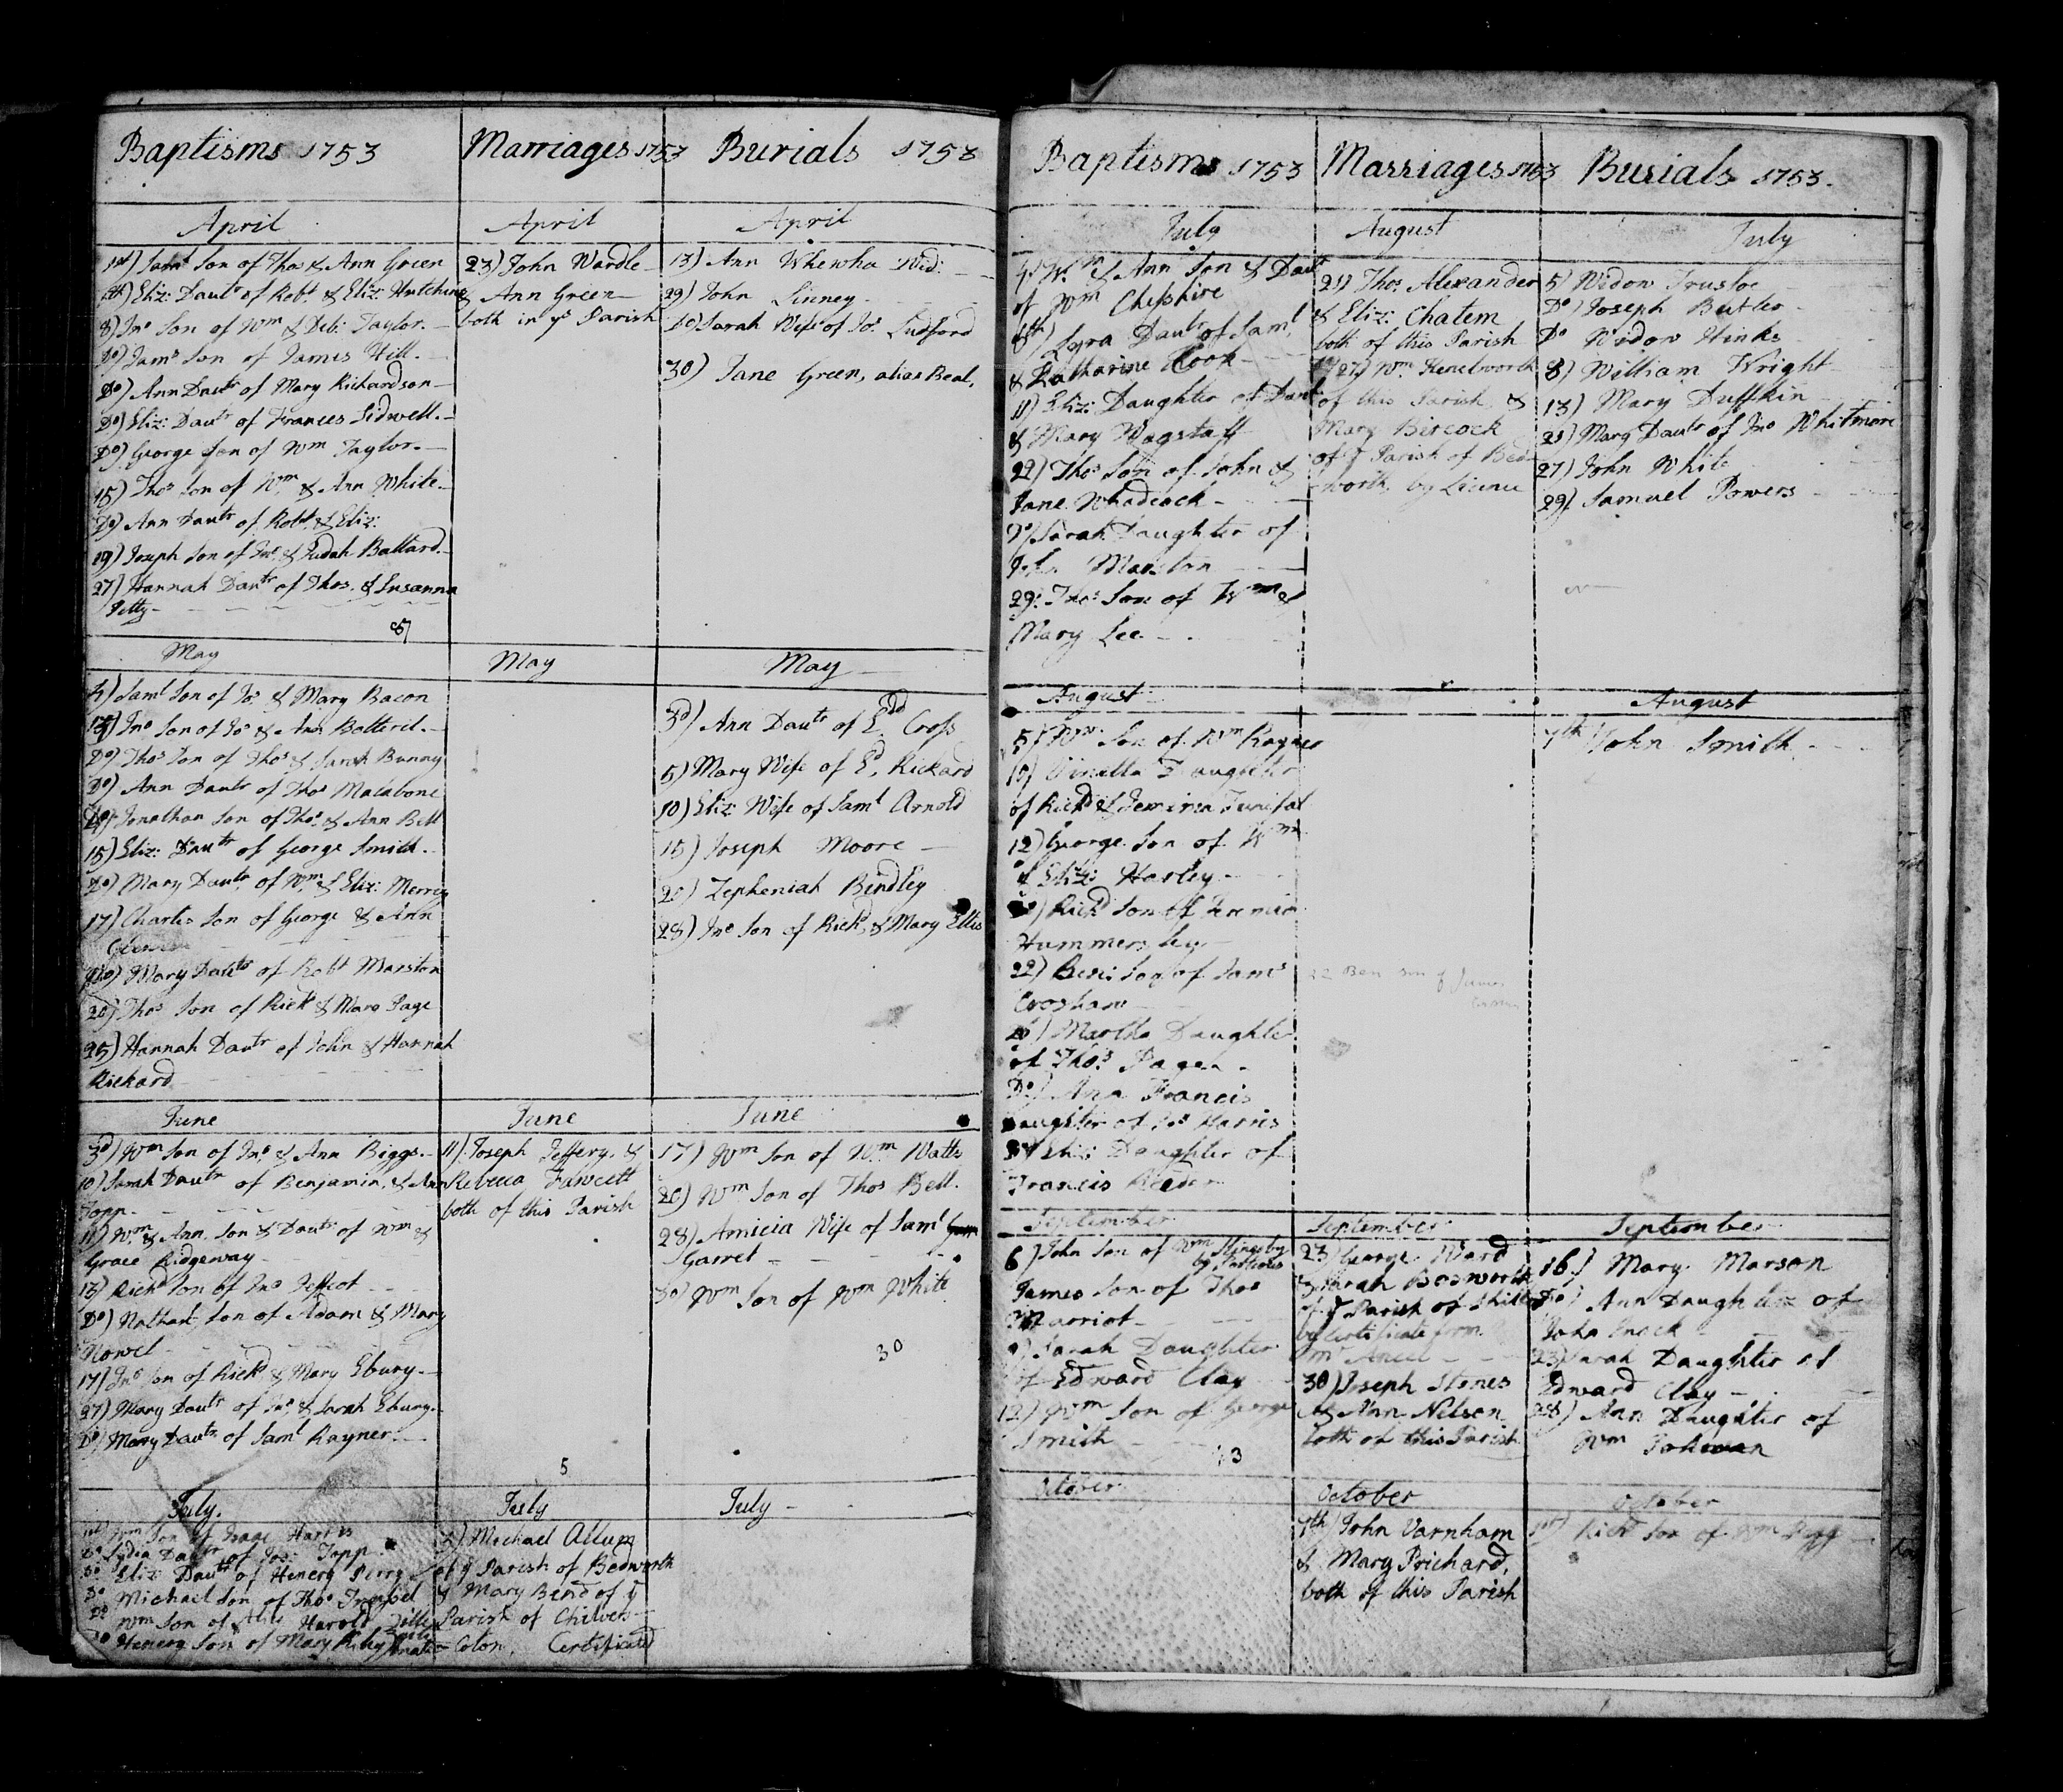 Baptisms 1753
April
1st) Saml Son of Thos & Ann Green
Eliz: Dautr of Robt & Eliz: Hutchins
8) Jno Son of Wm & Deb: Taylor.
Do) Jams Son of James Hill.
Do) Ann Dautr of Mary Richardson
Do) Eliz: Dautr of Frances Sidwell.
Do) George Son of Wm Taylor.
15) Thos Son of Wm & Ann White
Do) Ann Dautr of Robt & Eliz:
19) Joseph Son of Jno & Judah Ballard.
27) Hannah Dautr of Thos. & Susanna
Petty
May
Saml Son of Jos & Mary Bacon
13) Jno Son of Jos & Ann Botteril.
Do) Thos Son of Thos & Sarah Bunny
Do) Ann Dautr of Thos Malabone
Do) Jonathan Son of Thos & Ann Bell
15) Eliz: Dautr of George Smith.
Do) Mary Dautr of Wm & Eliz: Merrey
17) Charles Son of George & Ann
Mary Dautr of Robt Marston
20) Thos Son of Richd & Mary Page
25) Hannah Dautr of John & Hannah
Rickard
June
3d) Wm Son of Jno & Ann Biggs
10) Sarah Dautr of Benjamin & Ann
Topp.
11) Wm & Ann Son & Dautr of Wm &
Grace Ridgeway
13) Richd Son of Jno Jeffcot
Do) Nathanl. Son of Adam & Mary
Nowel
17) Jno Son of Richd & Mary Ebury.
27) Mary Dautr of Jno & Sarah Ebury.
Do) Mary Dautr of Saml Rayner.
July.
1st) Wm Son of Isaac Harris
Do Lydia Dautr of Jos: Topp.
Do Eliz: Dautr of Henery Perry
Do Michael Son of Thos
Do Wm Son of Harold
Do Henery Son of Mary
Marriages 1753
April
23) John Wardle
& Ann Green
both in ys Parish
May
June
11) Joseph Jeffery, &
Rebecca Fawcett
both of this Parish
5
July
2) Michael Allum
of ye Parish of Bedworth
& Mary Bend of ye
Parish of Chilvers
Coton. Certificate
Burials 1753
April
13) Ann Whewha Wid:
29) John Linney
Do) Sarah Wife of Jos. Ludford
30) Jane Green, alias Beal,
May
3d) Ann Dautr of Edd Cross
5) Mary Wife of Ed. Rickard
10) Eliz: Wife of Saml Arnold
15) Joseph Moore
20) Zepheniah Bindley
28) Jno Son of Richd & Mary Ellis
June
17) Wm Son of Wm Watts
20) Wm Son of Thos Bell.
28) Amicia Wife of Saml
Garret
30) Wm Son of Wm White
30
July
Baptisms 1753
July
Wm & Ann Son & Dautr
of Wm Cheshire
8th) Dautr of Saml
& Katharine Cook
11) Eliz: Daughter of Danl
& Mary Wagstaff
22) Thos Son of John &
Jane Whadcock
Do) Sarah Daughter of
John Marston
29: Thos Son of Wm &
Mary Lee
August
5) Wm Son of Wm Rayner
10) Daughter
of Richd & Jemima
12) George Son of Wm
& Eliz: Harley
Richd Son of
Hummersley
22) Benj: Son of Jams
Croshaw
Martha Daughter
of Thos Page
Do) Ann Francis
Daughter of Jos Harris
Eliz: Daughter of
Francis Reeder
September
6) John Son of Wm
James Son of Thos
Marriot
9) Sarah Daughter
of Edward Clay
12) Wm Son of George
Smith
October
Marriages 1753
August
21) Thos. Alexander
& Eliz: Chatem
both of this Parish
27) Wm. Kenelworth
of this Parish, &
Mary Bircock
of ye Parish of Bed-
worth, by Licence
22 Ben son of James
September
23) George Ward
& Sarah Bosworth
of ye Parish of
by Certificate from
Mr
30) Joseph Stones
& Ann Nelson
both of this Parish
October
7th) John Varnham
& Mary Prichard,
both of this Parish
Burials 1753.
July
5) Widow Trusloe
Do) Joseph Butler
Do Widow Hinks
8) William Wright
13) Mary Duffkin
21) Mary Dautr of Jno Whitmore
27) John White
29) Samuel Powers
August
7th John Smith
September
16) Mary Marson
Do) Ann Daughter of
John
23) Sarah Daughter of
Edward Clay
28) Ann Daughter of
Wm
October
1st) Richd Son of Wm